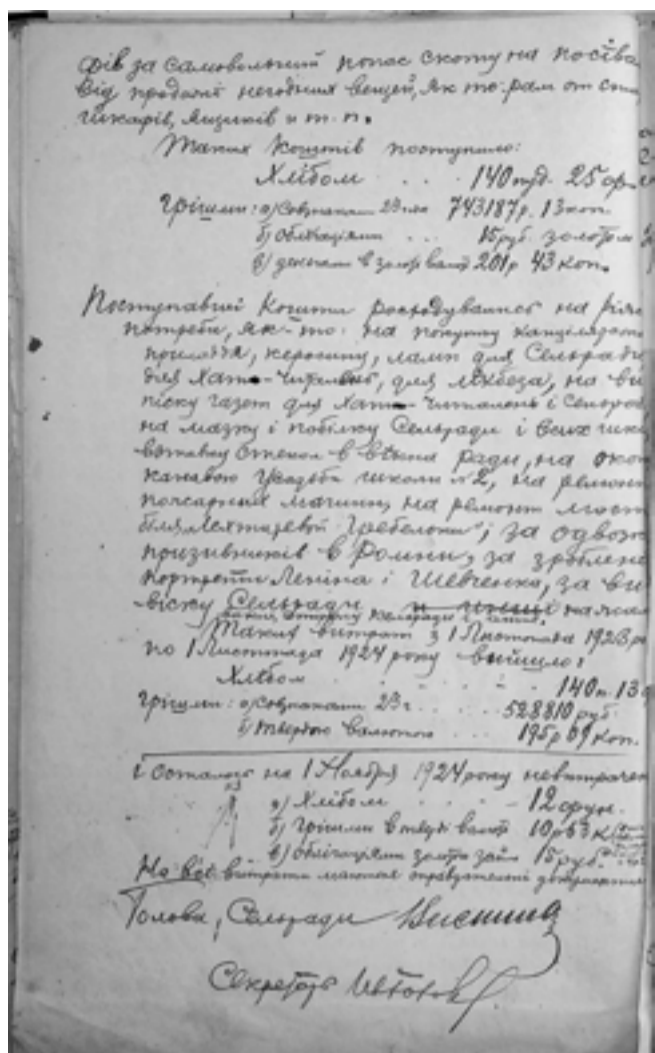 фів за самовольний попас скоту на посіва
Від продажі негодних вещей, як то: рам от
шкафів, ящиків и т. п.
Таких коштів поступило:
Хлібом . . . 140 пуд. 25 ф
Грішми: а) Совзнаками 23 743187 р. 13 коп.
б) облігаціями . . . 15 руб. золотом
в) деньгами в золот валют 201 р 43 коп.
Поступавші кошти росходувались на різн
потреби, як-то: на покупку канцелярськ
приладдя, керосину, ламп для Сельради
для Хат-читалень, для лікбеза, на ви
піску газет для Хат-читалень і Сельрад
на мазку і побілку Сельради і всих шк
вставку стекол в вікна ради, на окоп
канавою усадьби школи №2, на ремонт
пожарних машин, на ремонт мост
біля гребельки; за одвоз
призивників в Ромни, за зроблен
портрети Леніна і Шевченка, за ви
віску Сельради
Таких витрат з 1 Листопада 1923 р
по 1 Листопада 1924 року вийшло:
Хлібом . . . 140 п. 13
Грішми: а) Совзнаками 23 г. . . . 528810 руб.
б) твердою валютою . . . 195 р 69 коп.
і осталось на 1 Ноября 1924 року невитрачен
а) Хлібом . . . 12 фун.
б) Грішми в твердій валют 10 р 63 к
в) облігаціями золот займ 15 руб.
На всі витрати маються оправдательні документи
Голова, Сельради
Секретарь